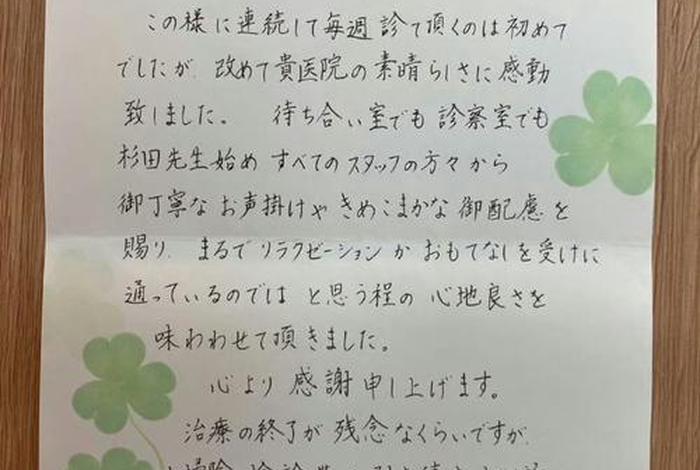 この様に連続して毎週診て頂くのは初めて
でしたが、改めて貴医院の素晴らしさに感動
致しました。 待ち合い室でも診察室でも
杉田先生始めすべてのスタッフの方々から
御丁寧なお声掛けやきめこまかな御配慮を
賜り、まるでリラクゼーションかおもてなしを受けに
通っているのではと思う程の心地良さを
味わわせて頂きました。
心より感謝申し上げます。
治療の終了が残念なくらいですが、